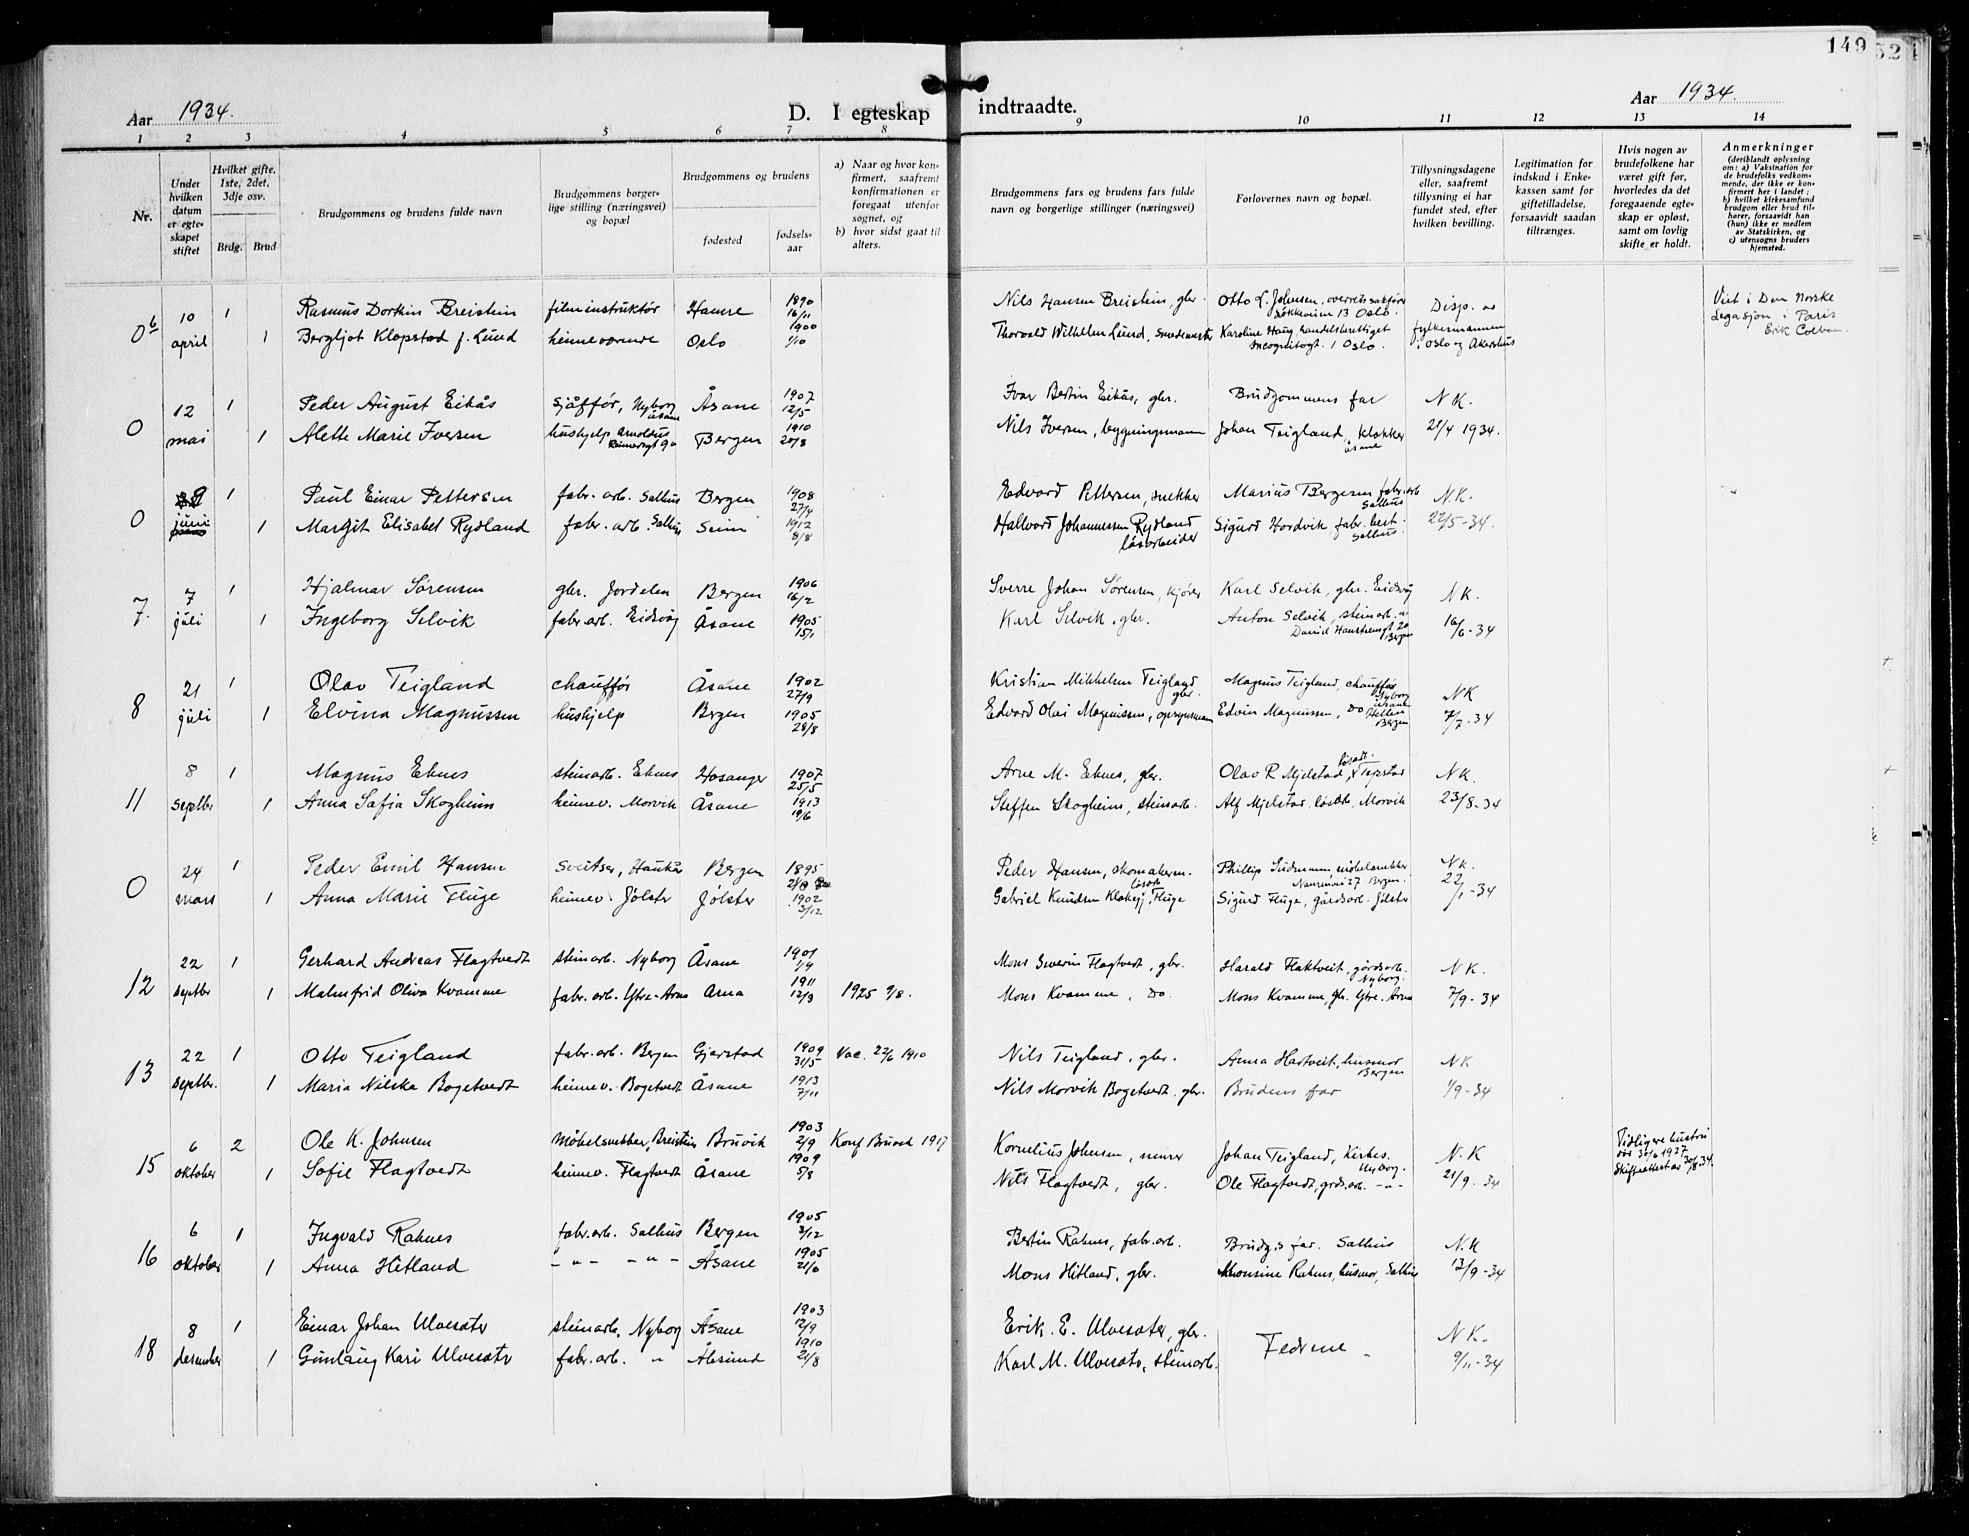 149
52
Aar 1934.
D. I egteskap indtraadte.
Aar 1934.
1 2 3 4 5 6 7 8 9 10 11 12 13 14
Nr.
Under hvilken datum er egteskapet stiftet
Hvilket gifte, 1ste, 2det, 3dje osv.
Brdg. Brud
Brudgommens og brudens fulde navn
Brudgommens borgerlige stilling (næringsvei) og bopæl
Brudgommens og brudens
fødested
fødselsaar
a) Naar og hvor konfirmert, saafremt konfirmationen er foregaat utenfor sognet, og
b) hvor sidst gaat til alters.
Brudgommens fars og brudens fars fulde navn og borgerlige stillinger (næringsvei)
Forlovernes navn og bopæl.
Tillysningsdagene eller, saafremt tillysning ei har fundet sted, efter hvilken bevilling.
Legitimation for indskud i Enkekassen samt for giftetilladelse, forsaavidt saadan tiltrænges.
Hvis nogen av brudefolkene har været gift før, hvorledes da det foregaaende egteskap er opløst, samt om lovlig skifte er holdt.
Anmerkninger
(deriblandt oplysning om: a) Vaksination for de brudefolks vedkommende, der ikke er konfirmert her i landet; b) hvilket kirkesamfund brudgom eller brud tilhører, forsaavidt han (hun) ikke er medlem av Statskirken, og c) utensogns bruders hjemsted.
0b 10 april 1 Rasmus Dortkin Breistein filminstruktør Hamre 1890 16/11 Nils Hansen Breistein, gbr. Otto L. Johnsen, overretssakfører 13 Oslo. Disp. av Viet i Den Norske Legasjon i Paris Erik Colban
1 Borgljot Klopstad f. Lund heimeværende Oslo 1900 1/10 Thorvald Wilhelm Lund, smedmester Karoline Haug handelsberettiget Incognitogt. 1 Oslo. fylkesmannen i Oslo og Akershus
0 12 mai 1 Peder August Eikås sjåffør, Nyborg Åsane Åsane 1907 12/5 Ivar Bertin Eikås, gbr. Brudgommens far N K.
1 Alette Marie Iversen hushjelp Arnoldus Reimersgt 9a Bergen 1910 20/8 Nils Iversen, bygningsmann Johan Teigland, klokker Åsane 21/4 1934.
0 9 juni 1 Paul Einar Pettersen fabr. arb. Salhus Bergen 1908 27/4 Edvard Pettersen, snekker Marius Bergesen fabr. arb Salhus N.K.
1 Margit Elisabet Rydland fabr. arb. Salhus Seim 1912 8/8 Hallvard Johannessen Rydland løsarbeider Sigurd Hordvik fabr. best. Salhus. 22/5-34.
7. 7 juli 1 Hjalmar Sørensen gbr. Jordalen Bergen 1906 16/2 Sverre Johan Sørensen, kjører Karl Selvik, gbr. Eidsvåg N K.
1 Ingeborg Selvik fabr. arb. Eidsvåg Åsane 1905 15/1 Karl Selvik, gbr. Anton Selvik, steinarb. Daniel Hansensgt 20 Bergen 16/6-34
8 21 juli 1 Olav Teigland chauffør Åsane 1902 27/9 Kristian Mikkelsen Teigland gbr. Magnus Teigland, chauffør Nyborg Åsane N K
1 Elvina Magnussen hushjelp Bergen 1905 28/8 Edvard Olai Magnussen, opsynsmann Edvin Magnussen, do Hellen Bergen 7/7-34
11 8 septbr 1 Magnus Eknes steinarb. Eknes Hosanger 1907 25/5 Arne M. Eknes, gbr. Olav R Mjelstad, løsarb. Tepstad N K.
1 Anna Sofia Skogheim heimev. Morvik Åsane 1913 19/6 Steffen Skogheim, steinarb. Alf Mjelstad, løsarb. Morvik 23/8-34
0 24 mars 1 Peder Emil Hansen sveitser, Haukås Bergen 1895 Peder Hansen, skomakerm. Phillip Sudmann, møbelsnekker 27 Bergen. N K. 22/1-34
1 Anna Marie Fluge heimev. Jølster Jølster 1902 3/12 Gabriel Knudsen Klakegg, løsarb Fluge Sigurd Fluge, gårdsarb. Jølster
12 22 septbr 1 Gerhard Andreas Flagtvedt steinarb. Nyborg Åsane 1901 1/9 Mons Severin Flagtvedt, gbr. Harald Flaktveit, gårdsarb. Nyborg. N K.
1 Malmfrid Oliva Kvamme fabr. arb. Ytre-Arna Arna 1911 12/9 1925 9/8. Mons Kvamme, do. Mons Kvamme, gbr. Ytre. Arna 7/9-34
13 22 septbr. 1 Otto Teigland fabr. arb. Bergen Gjerstad 1909 31/5 Vac. 22/6 1910 Nils Teigland, gbr. Anna Hartveit, husmor Bergen N K
1 Maria Nilska Bogetvedt heimev. Bogetvedt Åsane 1913 7/11 Nils Morvik Bogetvedt, gbr. Brudens far 1/9-34
15 6 oktober 2 Ole K. Johnsen Møbelsnekker, Breistein Bruvik 1903 2/9 Konf Bruvik 1917 Kornelius Johnsen, murer Johan Teigland, Kirkes. Nyborg. N. K Tidligere hustru død 30/6 1927 Skifteattest av 30/8.34.
1 Sofie Flagtvedt heimev. Flagtvedt Åsane 1909 5/8 Nils Flagtvedt, gbr. Ole Flagtvedt, grdsarb. -"- 21/9-34
16 6 oktober 1 Ingvald Raknes fabr. arb. Salhus Bergen 1905 3/12 Bertin Raknes, fabr. arb. Brudg.s far. Salhus N.K
1 Anna Hitland -"- -"- Åsane 1905 21/6 Mons Hitland, gbr. Monsine Raknes, husmor, Salhus 13/9-34
18 8 desember 1 Einar Johan Ulvesæter steinarb. Nyborg Åsane 1903 12/9 Erik. E. Ulvesæter, gbr. Fedrene N K.
1 Gunlaug Kari Ulvesæter fabr. arb. " Ålesund 1910 21/8 Karl M. Ulvesæter, steinarb. 9/11-34